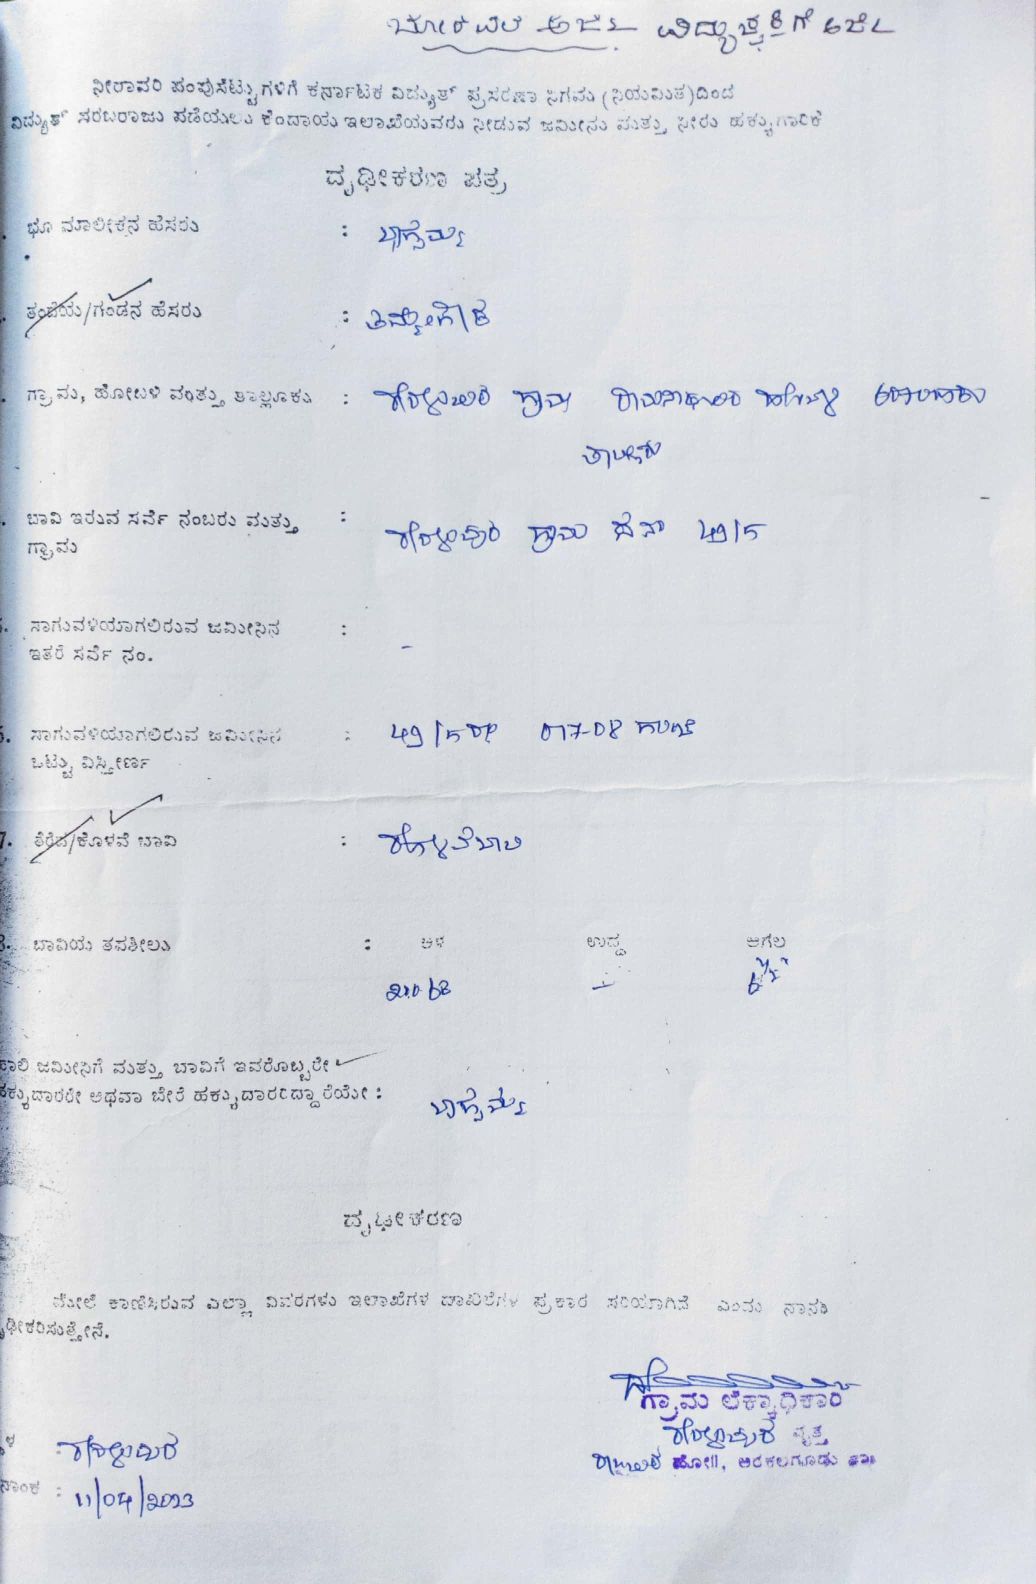 ಬೋರವೆಲ ಅರ್ಜಿ ವಿದ್ಯುಚ್ಛಕ್ತಿಗೆ ಅರ್ಜಿ
ನೀರಾವರಿ ಪಂಪುಸೆಟ್ಟುಗಳಿಗೆ ಕರ್ನಾಟಕ ವಿದ್ಯುತ್ ಪ್ರಸರಣಾ ನಿಗಮ (ನಿಯಮಿತ)ದಿಂದ
ವಿದ್ಯುತ್ ಸರಬರಾಜು ಪಡೆಯಲು ಕಂದಾಯ ಇಲಾಖೆಯವರು ನೀಡುವ ಜಮೀನು ಮತ್ತು ನೀರು ಹಕ್ಕುಗಾರಿಕೆ
ದೃಢೀಕರಣ ಪತ್ರ
ಭೂ ಮಾಲೀಕನ ಹೆಸರು :
ತಂದೆಯ/ಗಂಡನ ಹೆಸರು : ತಿಮ್ಮೇಗೌಡ
ಗ್ರಾಮ, ಹೋಬಳಿ ಮತ್ತು ತಾಲ್ಲೂಕು : ಗ್ರಾಮ ರಾಮನಾಥಪುರ ಹೋಬಳಿ ಅರಕಲಗೂಡು
ತಾಲ್ಲೂಕು
ಬಾವಿ ಇರುವ ಸರ್ವೆ ನಂಬರು ಮತ್ತು :
ಗ್ರಾಮ
ಗ್ರಾಮ ಸ ನಂ 49/5
ಸಾಗುವಳಿಯಾಗಲಿರುವ ಜಮೀನಿನ :
ಇತರೆ ಸರ್ವೆ ನಂ. -
6. ಸಾಗುವಳಿಯಾಗಲಿರುವ ಜಮೀನಿನ : 49/5ರಲ್ಲಿ 017-08 ಗುಂಟೆ
ಒಟ್ಟು ವಿಸ್ತೀರ್ಣ
7. ತೆರೆದ/ಕೊಳವೆ ಬಾವಿ : ಕೊಳವೆಬಾವಿ
8. ಬಾವಿಯ ತಪಶೀಲು : ಆಳ ಉದ್ದ ಅಗಲ
210 ಅಡಿ - 6 1/2"
ಖಾಲಿ ಜಮೀನಿಗೆ ಮತ್ತು ಬಾವಿಗೆ ಇವರೊಬ್ಬರೇ
ಹಕ್ಕುದಾರರೇ ಅಥವಾ ಬೇರೆ ಹಕ್ಕುದಾರರಿದ್ದಾರೆಯೇ :
ದೃಢೀಕರಣ
ಮೇಲೆ ಕಾಣಿಸಿರುವ ಎಲ್ಲಾ ವಿವರಗಳು ಇಲಾಖೆಗಳ ದಾಖಲೆಗಳ ಪ್ರಕಾರ ಸರಿಯಾಗಿದೆ ಎಂದು ನಾನು
ಢೀಕರಿಸುತ್ತೇನೆ.
ಗ್ರಾಮ ಲೆಕ್ಕಾಧಿಕಾರಿ
ವೃತ್ತ
ಹೋ||, ಅರಕಲಗೂಡು ತಾ||
ನಾಂಕ : 11/04/2023